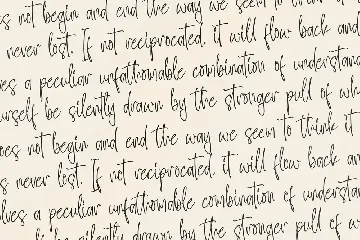 s not begin and end the way we seem to think
never lost. If not reciprocated, it will flow back and
ves a peculiar unfathomable combination of understand
urself be silently drawn by the stronger pull of wh
oes not begin and end the way we seem to think it
s never lost. If not reciprocated, it will flow back an
olves a peculiar unfathomable combination of understan
be silently drawn by the stronger pull of w